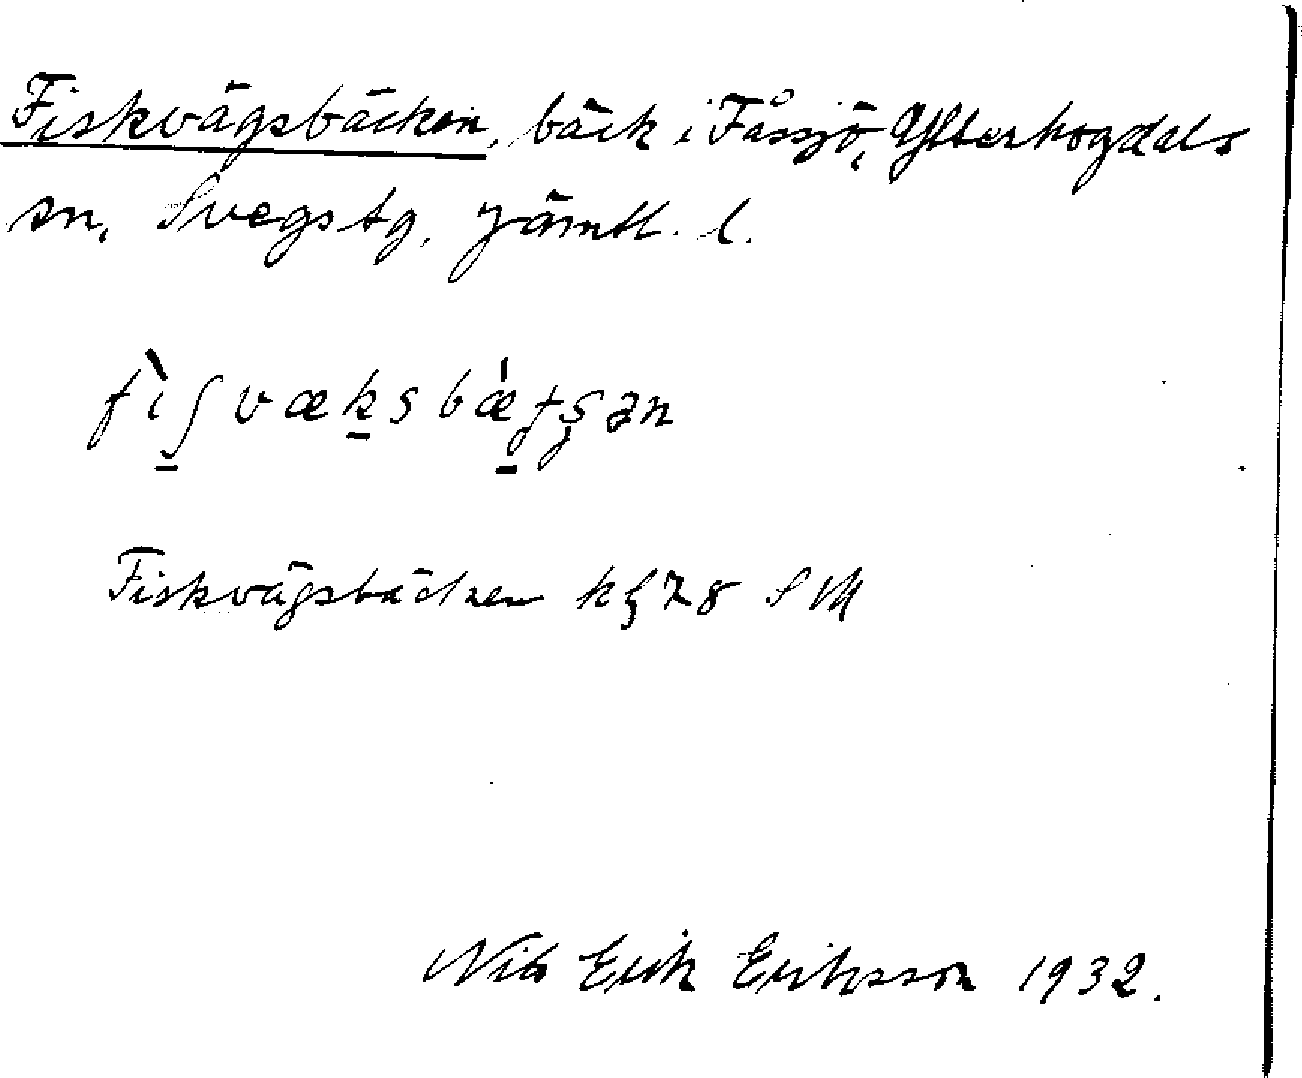 Fiskvägsbäcken, bäck i Fåssjö, Ytterhogdals
sn, Svegs tg, Jämtl. l.
fìʃvæksbǽtʂən
Fiskvägsbäcken kbl 78 SV
Nils Erik Eriksson 1932.